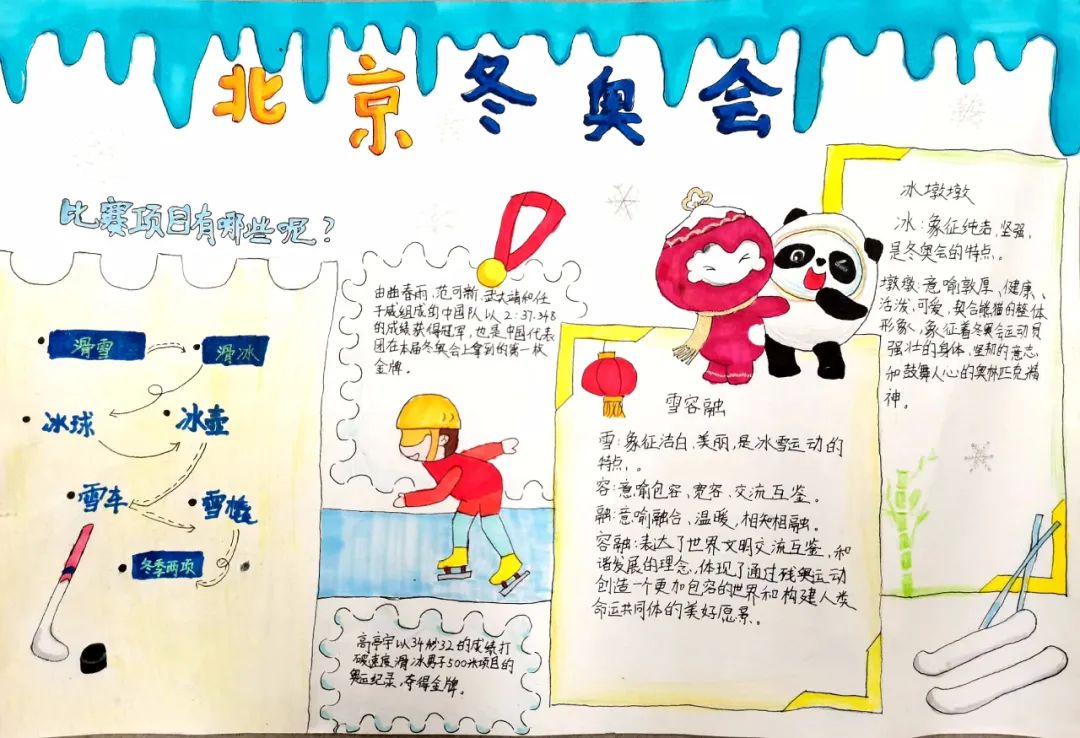 北京冬奥会
比赛项目有哪些呢？
滑雪
滑冰
冰球
冰壶
雪车
雪橇
冬季两项
由曲春雨，范可新，武大靖和任
子威组成的中国队以2:37.348
的成绩获得冠军，也是中国代表
团在本届冬奥会上拿到的第一枚
金牌。
高亭宇以34秒32的成绩打
破速度滑冰男子500米项目的
奥运纪录，夺得金牌。
雪容融
雪：象征洁白、美丽，是冰雪运动的
特点。
容：意喻包容、宽容、交流互鉴。
融：意喻融合、温暖，相知相融。
容融：表达了世界文明交流互鉴，和
谐发展的理念，体现了通过残奥运动
创造一个更加包容的世界和构建人类
命运共同体的美好愿景。
冰墩墩
冰：象征纯洁、坚强，
是冬奥会的特点。
墩墩：意喻敦厚、健康、
活泼、可爱，契合熊猫的整体
形象，象征着冬奥会运动员
强壮的身体、坚韧的意志
和鼓舞人心的奥林匹克精
神。